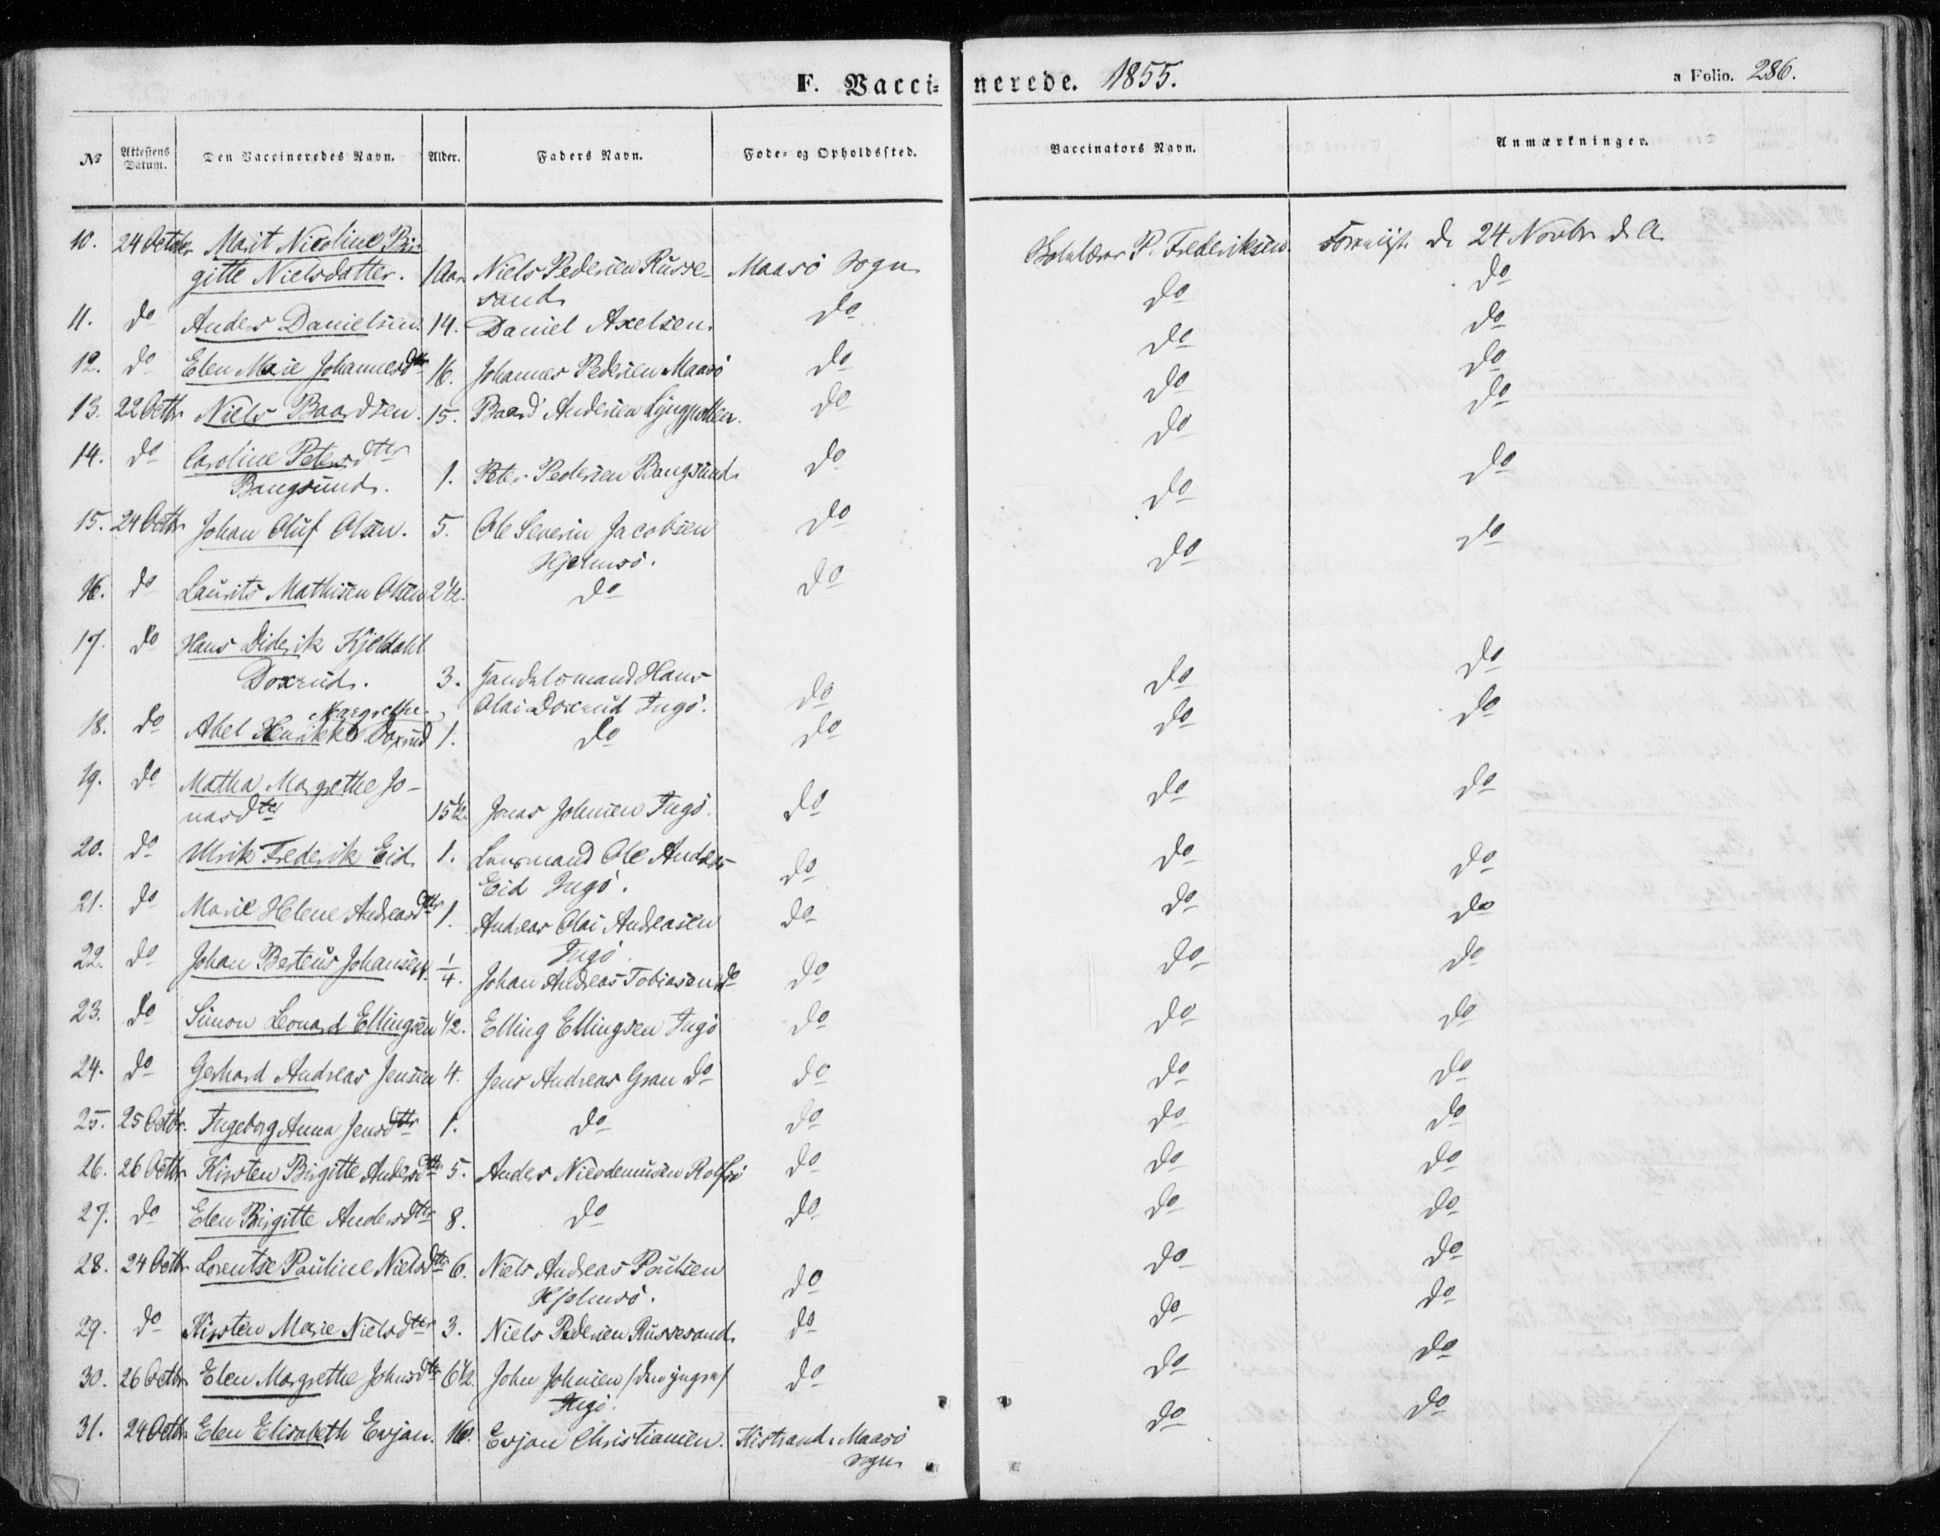 F. Vaccinerede. 1855. a Folio. 286.
No Attestens Datum. Den Vaccineredes Navn. Alder. Faders Navn. Føde- og Opholdssted. Vaccinators Navn. Anmærkninger.
10. 24 Octobr Marit Nicoline Bir-
gitte Nielsdatter. 1 Aar. Niels Pedersen Russe- Maasö Sogn P. Frederiksen 24 Novbr d. A.
sund.
11. do Anders Danielsen. 14. Daniel Axelsen. do do do
12. do Elen Marie Johannesdtr 16. Johannes Pedersen Maasö do do do
13. 22 Octbr Niels Baardsen. 15. Baard Andersen do do do
14. do Caroline Petersdttr
Bangsund. 1. Peter Pedersen Bangsund do do do
15. 24 Octbr Johan Oluf Olsen. 5. Ole Severin Jacobsen do do do
Hjelmsö.
16. do Laurits Mathisen Olsen 2½. do do do do
17. do Hans Diderik Kjeldahl
Doxrud. 3. Handelsmand Hans do do do
Olai Doxrud Ingö.
18. do Abel Henrikke Margrethe Doxrud 1. do do do do
19. do Matha Margrethe Jo-
nasdtr 15½. Jonas Johnsen Ingö. do do do
20. do Ulrik Frederik Eid. 1. Lensmand Ole Andreas do do do
Eid Ingö.
21. do Marie Helene Andreasdttr 1. Andreas Olai Andreasen do do do
Ingö.
22. do Johan Berteus Johansen. ¼. Johan Andreas Tobiasen do do do do
23. do Simon Leonard Ellingsen ½. Elling Ellingsen Ingö do do do
24. do Gerhard Andreas Jensen 4. Jens Andreas Gran do do do do
25. 25 Octbr. Ingeborg Anna Jensdttr 1. do do do do
26. 26 Octbr Kirsten Birgitte Andersdttr 5. Anders Nicodemusen Rolfsö do do do
27. do Elen Birgitte Andersdttr 8. do do do do
28. 24 Octbr Lorentse Pauline Nielsdttr 6. Niels Andreas Poulsen do do do
Hjelmsö.
29. do Kirsten Marie Nielsdttr 3. Niels Pedersen Russesund. do do do
30. 26 Octbr Elen Margrethe Johnsdtr 6½. John Johnsen /den yngre/ do do do
Ingö.
31. 24 Octbr. Elen Elisabeth Evjan. 16. Evjan Christiansen. Kistrand. Maasö do do
Sogn.